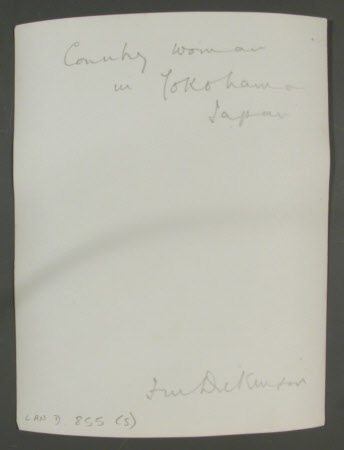 Country woman
in Yokohama
Japan
Dickinson
LAN. D. 855 (S)